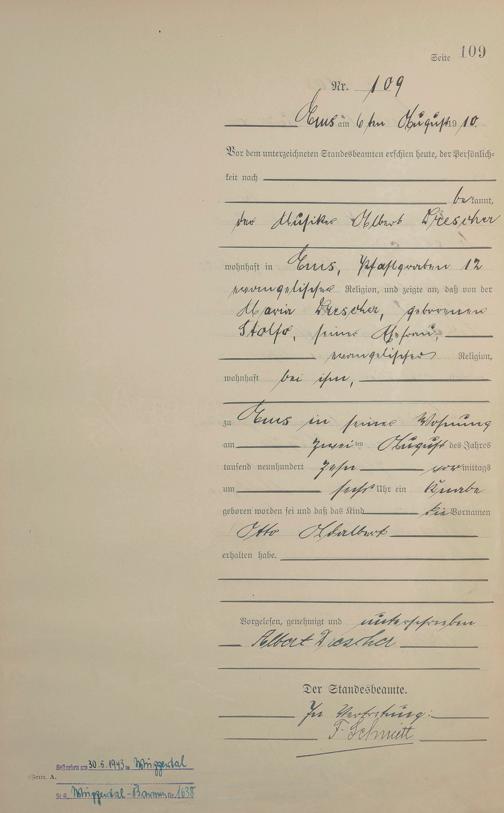 Seite 109
Nr. 109
Ems am 6ten August 1910.
Vor dem unterzeichneten Standesbeamten erschien heute, der Persönlich-
keit nach
bekannt,
der Musiker Albert Drescher
wohnhaft in Ems, Pfahlgraben 12
evangelischer Religion, und zeigte an, daß von der
Maria Drescher, geborenen
seiner Ehefrau,
evangelischer Religion,
wohnhaft bei ihm,
zu Ems in seiner Wohnung
am zwei ten August des Jahres
tausend neunhundert zehn vormittags
um sechs Uhr ein Knabe
geboren worden sei und daß das Kind die Vornamen
Otto Adalbert
erhalten habe.
Vorgelesen, genehmigt und unterschrieben
Albert Drescher
Der Standesbeamte.
In Vertretung:
F. Schmitt
Gestorben am 30.5.1943 in Wuppertal
Gebrt. A.
St.A. Wuppertal-Barmen Nr. 1638